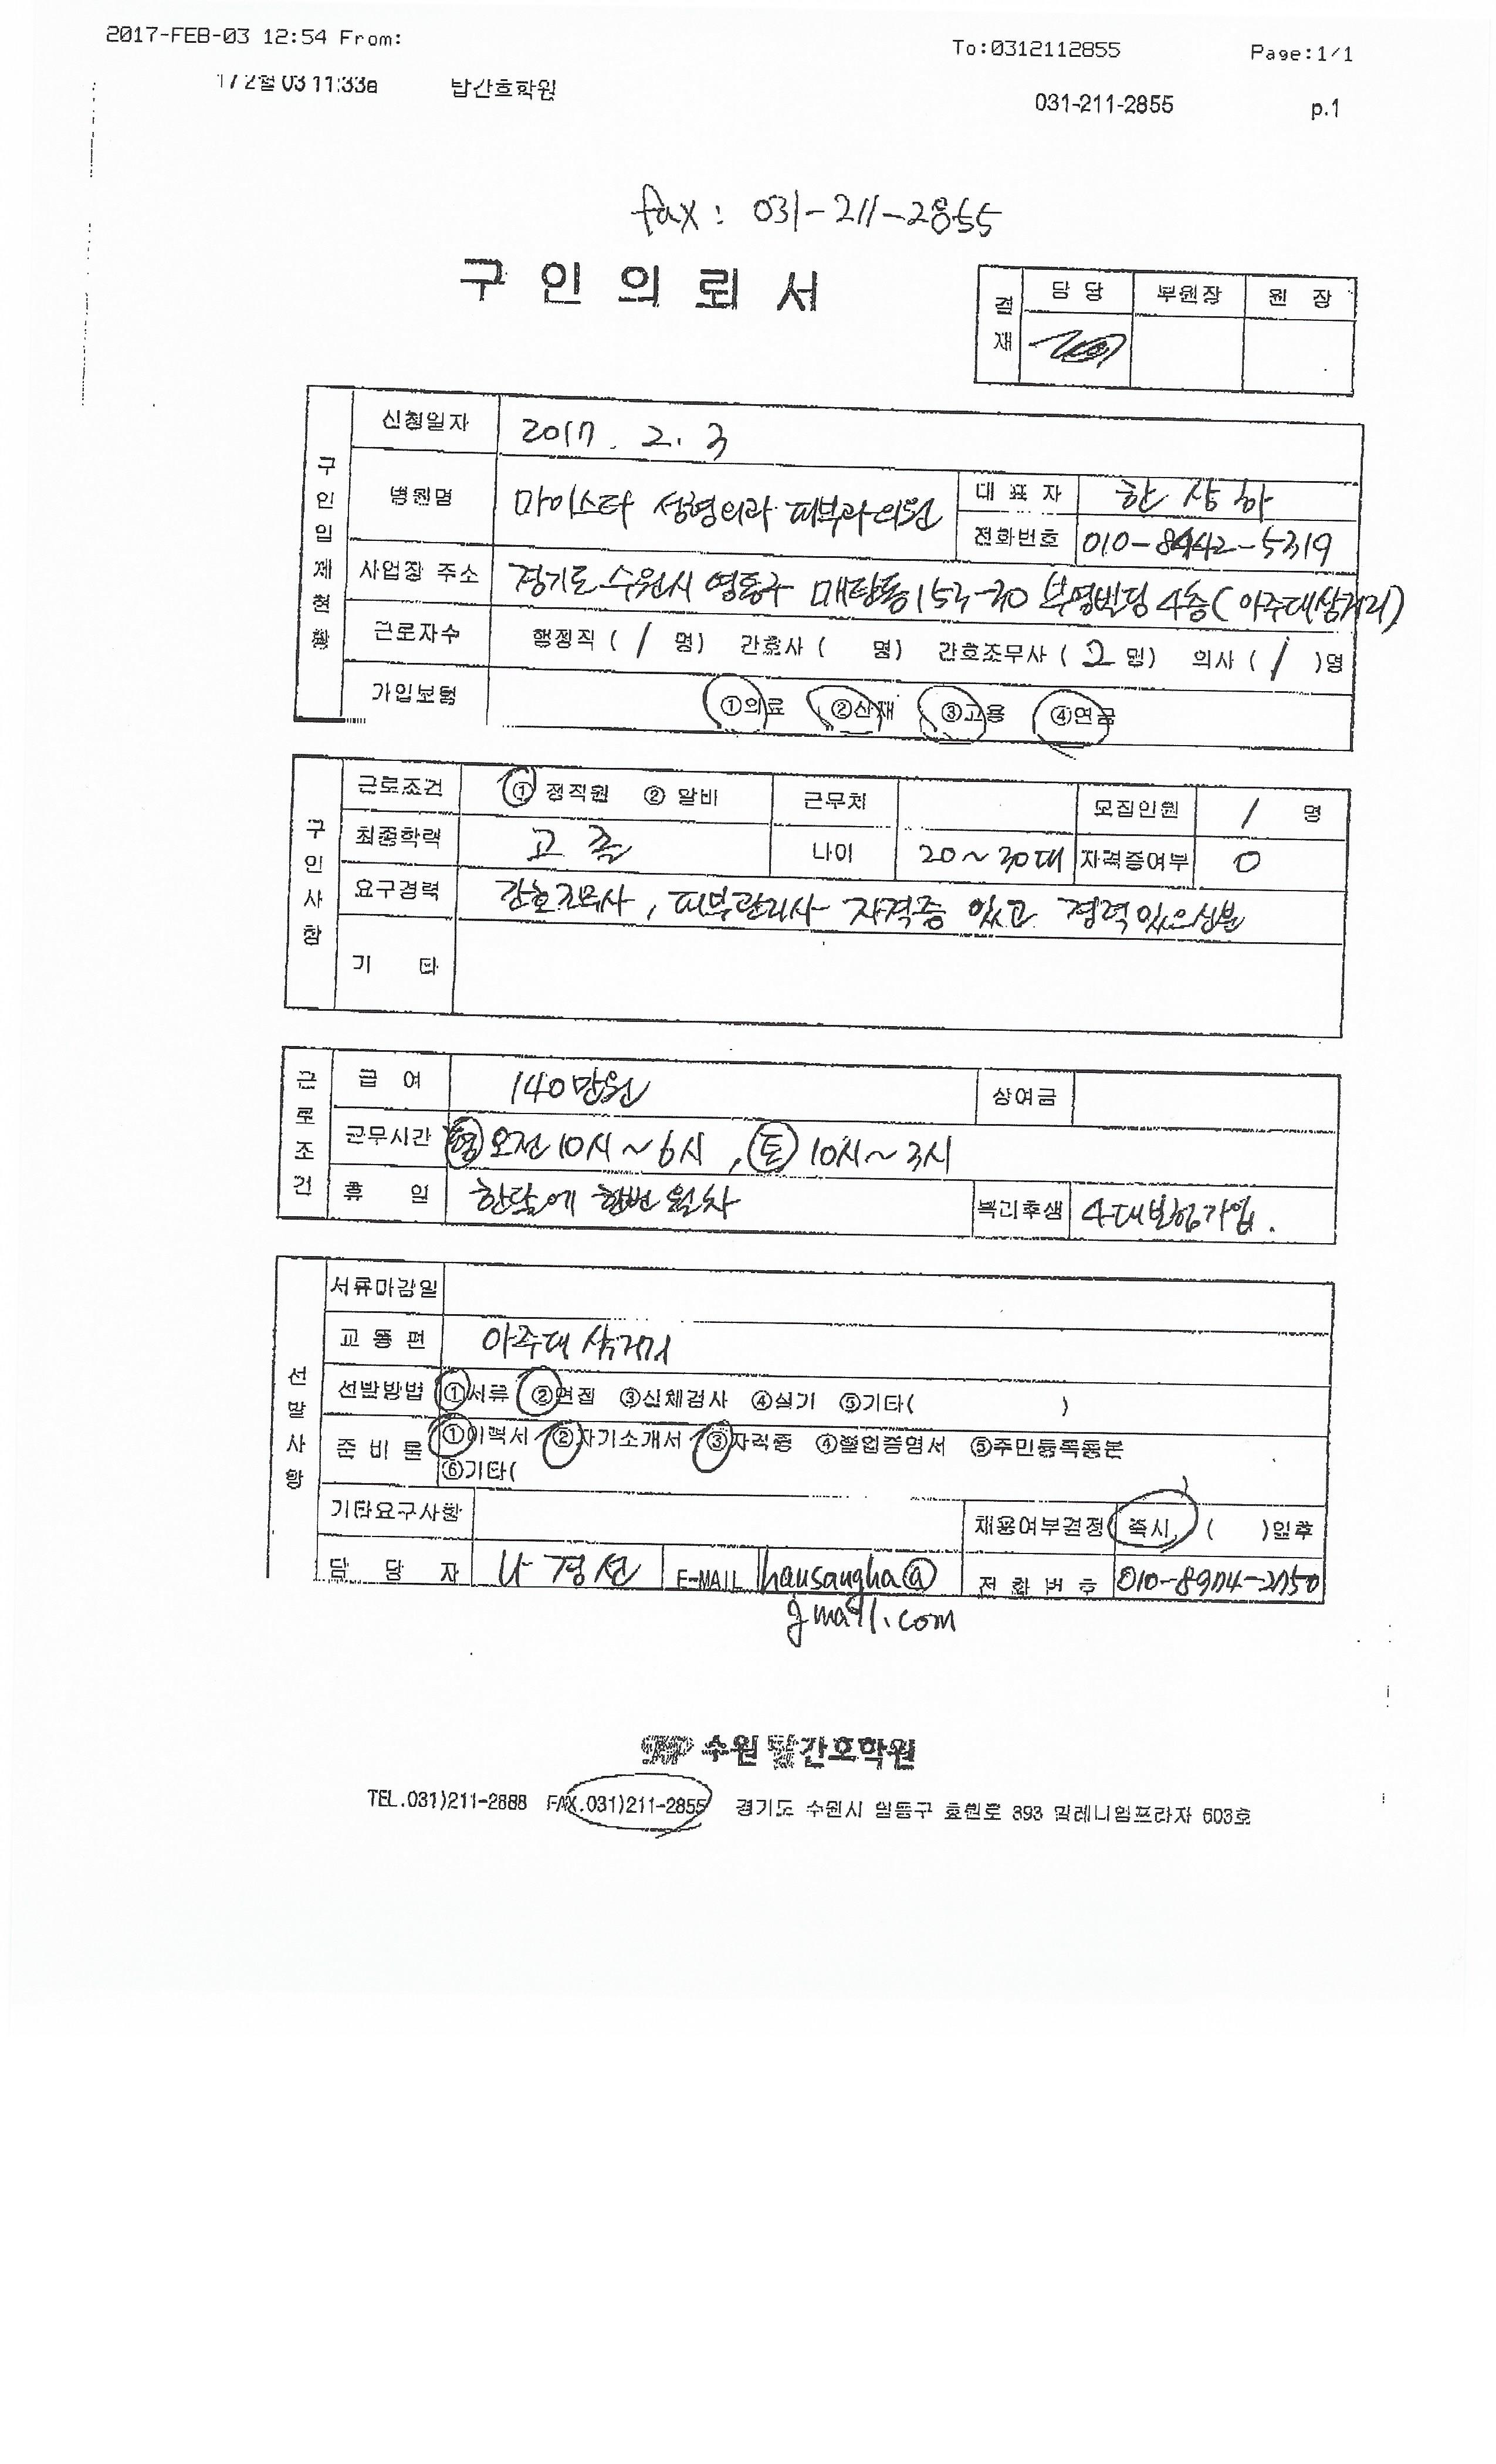 2017-FEB-03 12:54 From: To:0312112855 Page:1/1
17 2월 03 11:33a 탑간호학원 031-211-2855 p.1
fax : 031-211-2855
구 인 의 뢰 서
결재 담 당 부원장 원 장
구인업체현황
신청일자 2017. 2. 3
병원명 마이스타 성형외과 피부과의원 대 표 자 한 상 하
전화번호 010-8442-5319
사업장 주소 경기도 수원시 영통구 매탄동 153-30 부영빌딩 4층 (아주대삼거리)
근로자수 행정직 ( 1 명) 간호사 ( 명) 간호조무사 ( 2 명) 의사 ( 1 )명
가입보험 ①의료 ②산재 ③고용 ④연금
구인사항
근로조건 ① 정직원 ② 알바 근무처 모집인원 1 명
최종학력 고 졸 나이 20~30대 자격증여부 O
요구경력 간호조무사, 피부관리사 자격증 있고 경력있으신분
기 타
근로조건
급 여 140만원 상여금
근무시간 평 오전 10시~6시, 토 10시~3시
휴 일 한달에 한번 월차 복리후생 4대보험가입.
선발사항
서류마감일
교 통 편 아주대 삼거리
선발방법 ①서류 ②면접 ③신체검사 ④실기 ⑤기타( )
준 비 물 ①이력서 ②자기소개서 ③자격증 ④졸업증명서 ⑤주민등록등본
⑥기타( )
기타요구사항 채용여부결정 즉시, ( )일후
담 당 자 나 경선 E-MAIL hansangha@
전 화 번 호 010-8974-2750
gmail.com
수원 탑간호학원
TEL.031)211-2888 FAX.031)211-2855 경기도 수원시 팔달구 효원로 393 밀레니엄프라자 603호